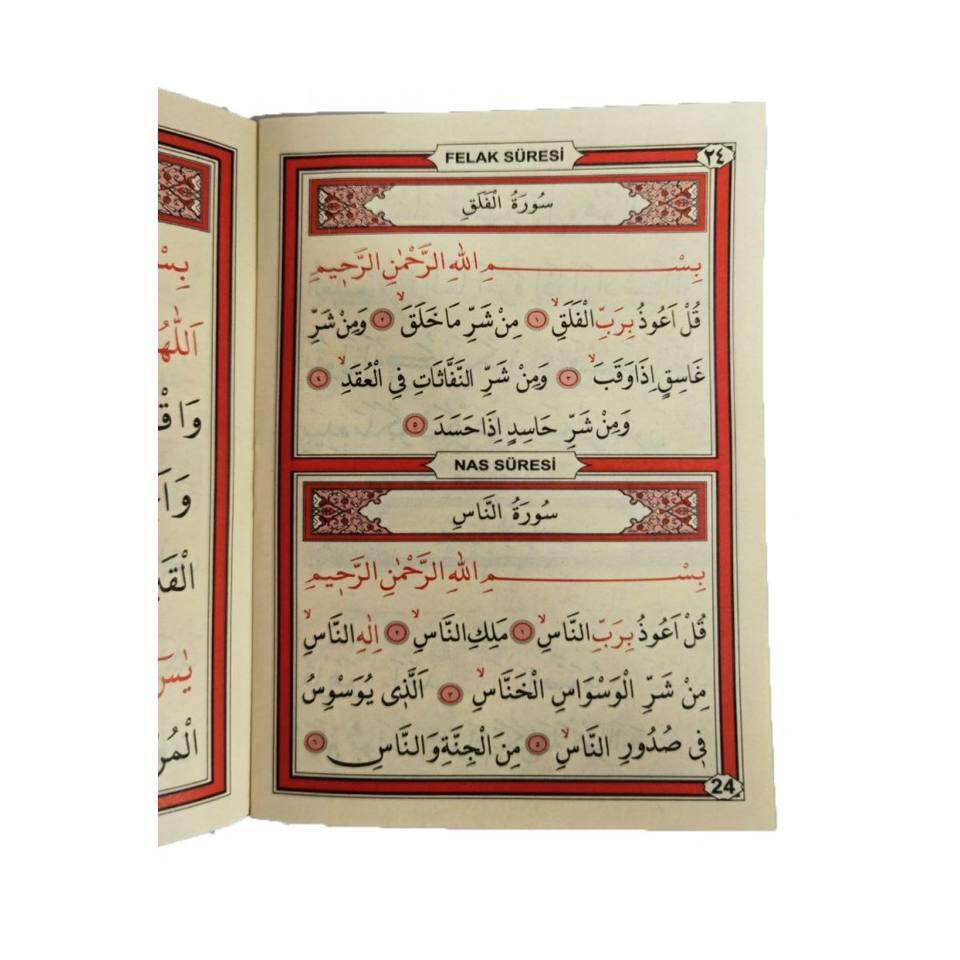 FELAK SÜRESİ
٢٤
سُورَةُ الْفَلَقِ
بِسْمِ اللهِ الرَّحْمٰنِ الرَّحٖيمِ
قُلْ اَعُوذُ بِرَبِّ الْفَلَقِۙ ١ مِنْ شَرِّ مَا خَلَقَۙ ٢ وَمِنْ شَرِّ
غَاسِقٍ اِذَا وَقَبَۙ ٣ وَمِنْ شَرِّ النَّفَّاثَاتِ فِي الْعُقَدِۙ ٤
وَمِنْ شَرِّ حَاسِدٍ اِذَا حَسَدَ ٥
NAS SÜRESİ
سُورَةُ النَّاسِ
بِسْمِ اللهِ الرَّحْمٰنِ الرَّحٖيمِ
قُلْ اَعُوذُ بِرَبِّ النَّاسِۙ ١ مَلِكِ النَّاسِۙ ٢ اِلٰهِ النَّاسِۙ
مِنْ شَرِّ الْوَسْوَاسِ الْخَنَّاسِۙ ٣ اَلَّذٖى يُوَسْوِسُ
فٖى صُدُورِ النَّاسِۙ ٥ مِنَ الْجِنَّةِ وَالنَّاسِ ٦
24